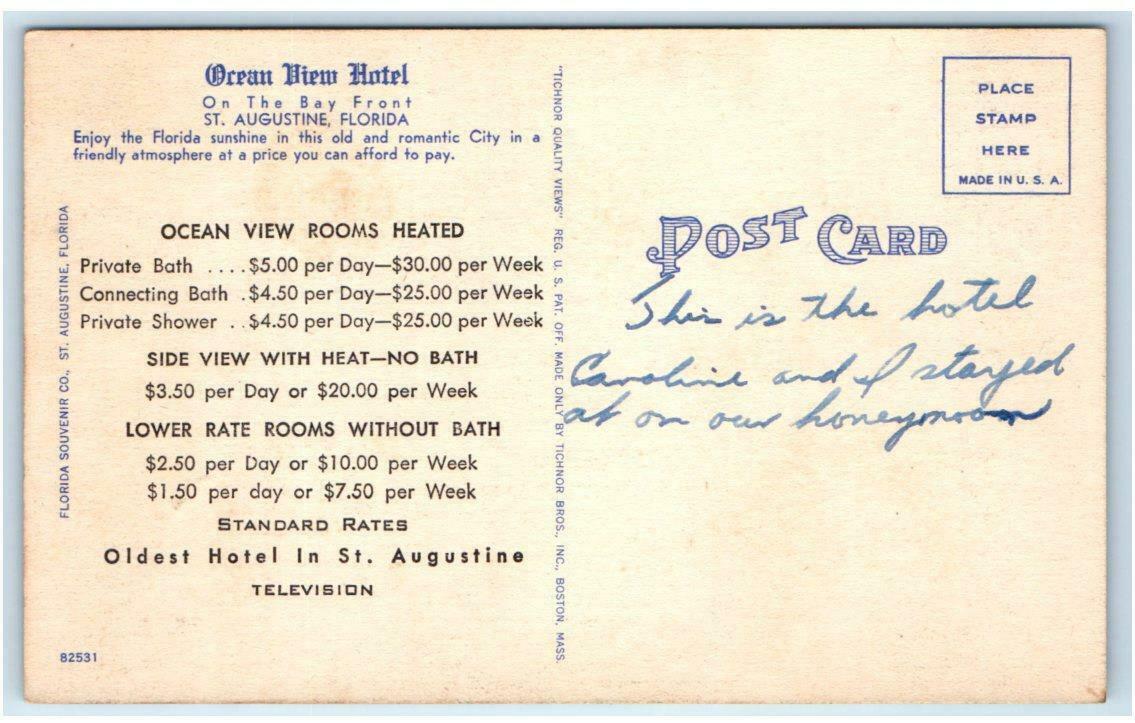 Ocean View Hotel
On The Bay Front
ST. AUGUSTINE, FLORIDA
Enjoy the Florida sunshine in this old and romantic City in a
friendly atmosphere at a price you can afford to pay.
OCEAN VIEW ROOMS HEATED
Private Bath ....$5.00 per Day—$30.00 per Week
Connecting Bath .$4.50 per Day—$25.00 per Week
Private Shower ..$4.50 per Day—$25.00 per Week
SIDE VIEW WITH HEAT—NO BATH
$3.50 per Day or $20.00 per Week
LOWER RATE ROOMS WITHOUT BATH
$2.50 per Day or $10.00 per Week
$1.50 per day or $7.50 per Week
STANDARD RATES
Oldest Hotel In St. Augustine
TELEVISION
82531
FLORIDA SOUVENIR CO., ST. AUGUSTINE, FLORIDA
"TICHNOR QUALITY VIEWS" REG. U. S. PAT. OFF. MADE ONLY BY TICHNOR BROS., INC., BOSTON, MASS.
PLACE
STAMP
HERE
MADE IN U. S. A.
POST CARD
This is the hotel
Caroline and I stayed
at on our honeymoon